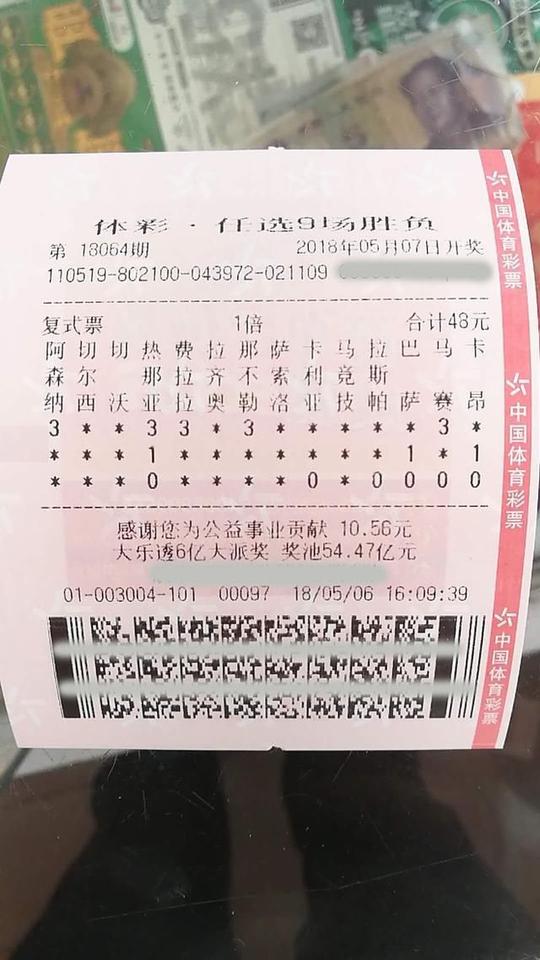 体彩·任选9场胜负
第 18064期 2018年05月07日开奖
110519-802100-043972-021109
复式票 1倍 合计48元
阿 切 切 热 费 拉 那 萨 卡 马 拉 巴 马 卡
森 尔 那 拉 齐 不 索 利 竞 斯
纳 西 沃 亚 拉 奥 勒 洛 亚 技 帕 萨 赛 昂
3 * * 3 3 * 3 * * * * * 3 *
* * * 1 * * * * * * * 1 * 1
* * * 0 * * * * 0 * 0 0 0 0
感谢您为公益事业贡献 10.56元
大乐透6亿大派奖 奖池54.47亿元
01-003004-101 00097 18/05/06 16:09:39
中国体育彩票
中国体育彩票
中国体育彩票